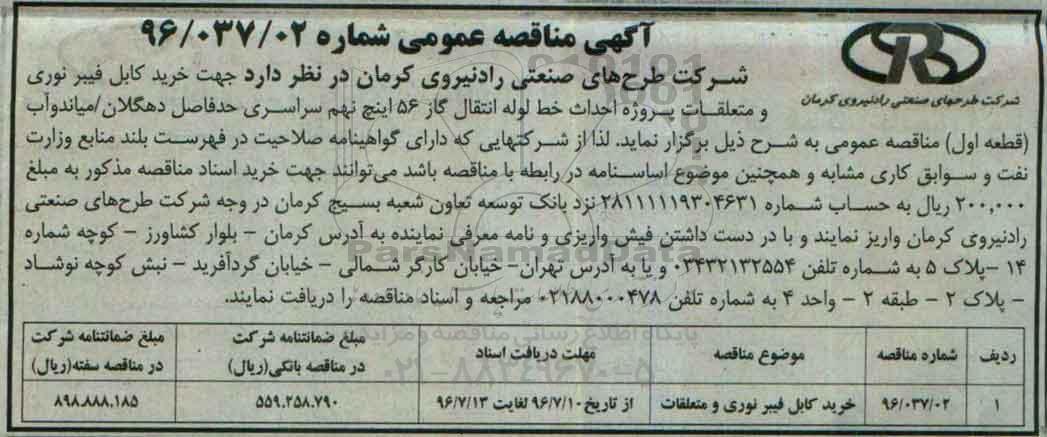 آگهی مناقصه عمومی شماره ۹۶/۰۳۷/۰۲
شرکت طرحهای صنعتی رادنیروی کرمان
شرکت طرح‌های صنعتی رادنیروی کرمان در نظر دارد جهت خرید کابل فیبر نوری
و متعلقات پروژه احداث خط لوله انتقال گاز ۵۶ اینچ نهم سراسری حدفاصل دهگلان/میاندوآب
(قطعه اول) مناقصه عمومی به شرح ذیل برگزار نماید. لذا از شرکتهایی که دارای گواهینامه صلاحیت در فهرست بلند منابع وزارت
نفت و سوابق کاری مشابه و همچنین موضوع اساسنامه در رابطه با مناقصه باشد می‌توانند جهت خرید اسناد مناقصه مذکور به مبلغ
۲۰۰,۰۰۰ ریال به حساب شماره ۲۸۱۱۱۱۱۱۹۳۰۴۶۳۱ نزد بانک توسعه تعاون شعبه بسیج کرمان در وجه شرکت طرح‌های صنعتی
رادنیروی کرمان واریز نمایند و با در دست داشتن فیش واریزی و نامه معرفی نماینده به آدرس کرمان – بلوار کشاورز – کوچه شماره
۱۴ –پلاک ۵ به شماره تلفن ۰۳۴۳۲۱۳۲۵۵۴ و یا به آدرس تهران– خیابان کارگر شمالی – خیابان گردآفرید – نبش کوچه نوشاد
– پلاک ۲ – طبقه ۲ – واحد ۴ به شماره تلفن ۰۲۱۸۸۰۰۰۴۷۸ مراجعه و اسناد مناقصه را دریافت نمایند.
ParsNamadData
پایگاه اطلاع رسانی مناقصه و مزایده
۰۲۱-۸۸۳۴۹۶۷۰-۵
ردیف شماره مناقصه موضوع مناقصه مهلت دریافت اسناد مبلغ ضمانتنامه شرکت در مناقصه بانکی(ریال) مبلغ ضمانتنامه شرکت در مناقصه سفته(ریال)
۱ ۹۶/۰۳۷/۰۲ خرید کابل فیبر نوری و متعلقات از تاریخ ۹۶/۷/۱۰ لغایت ۹۶/۷/۱۳ ۵۵۹.۲۵۸.۷۹۰ ۸۹۸.۸۸۸.۱۸۵